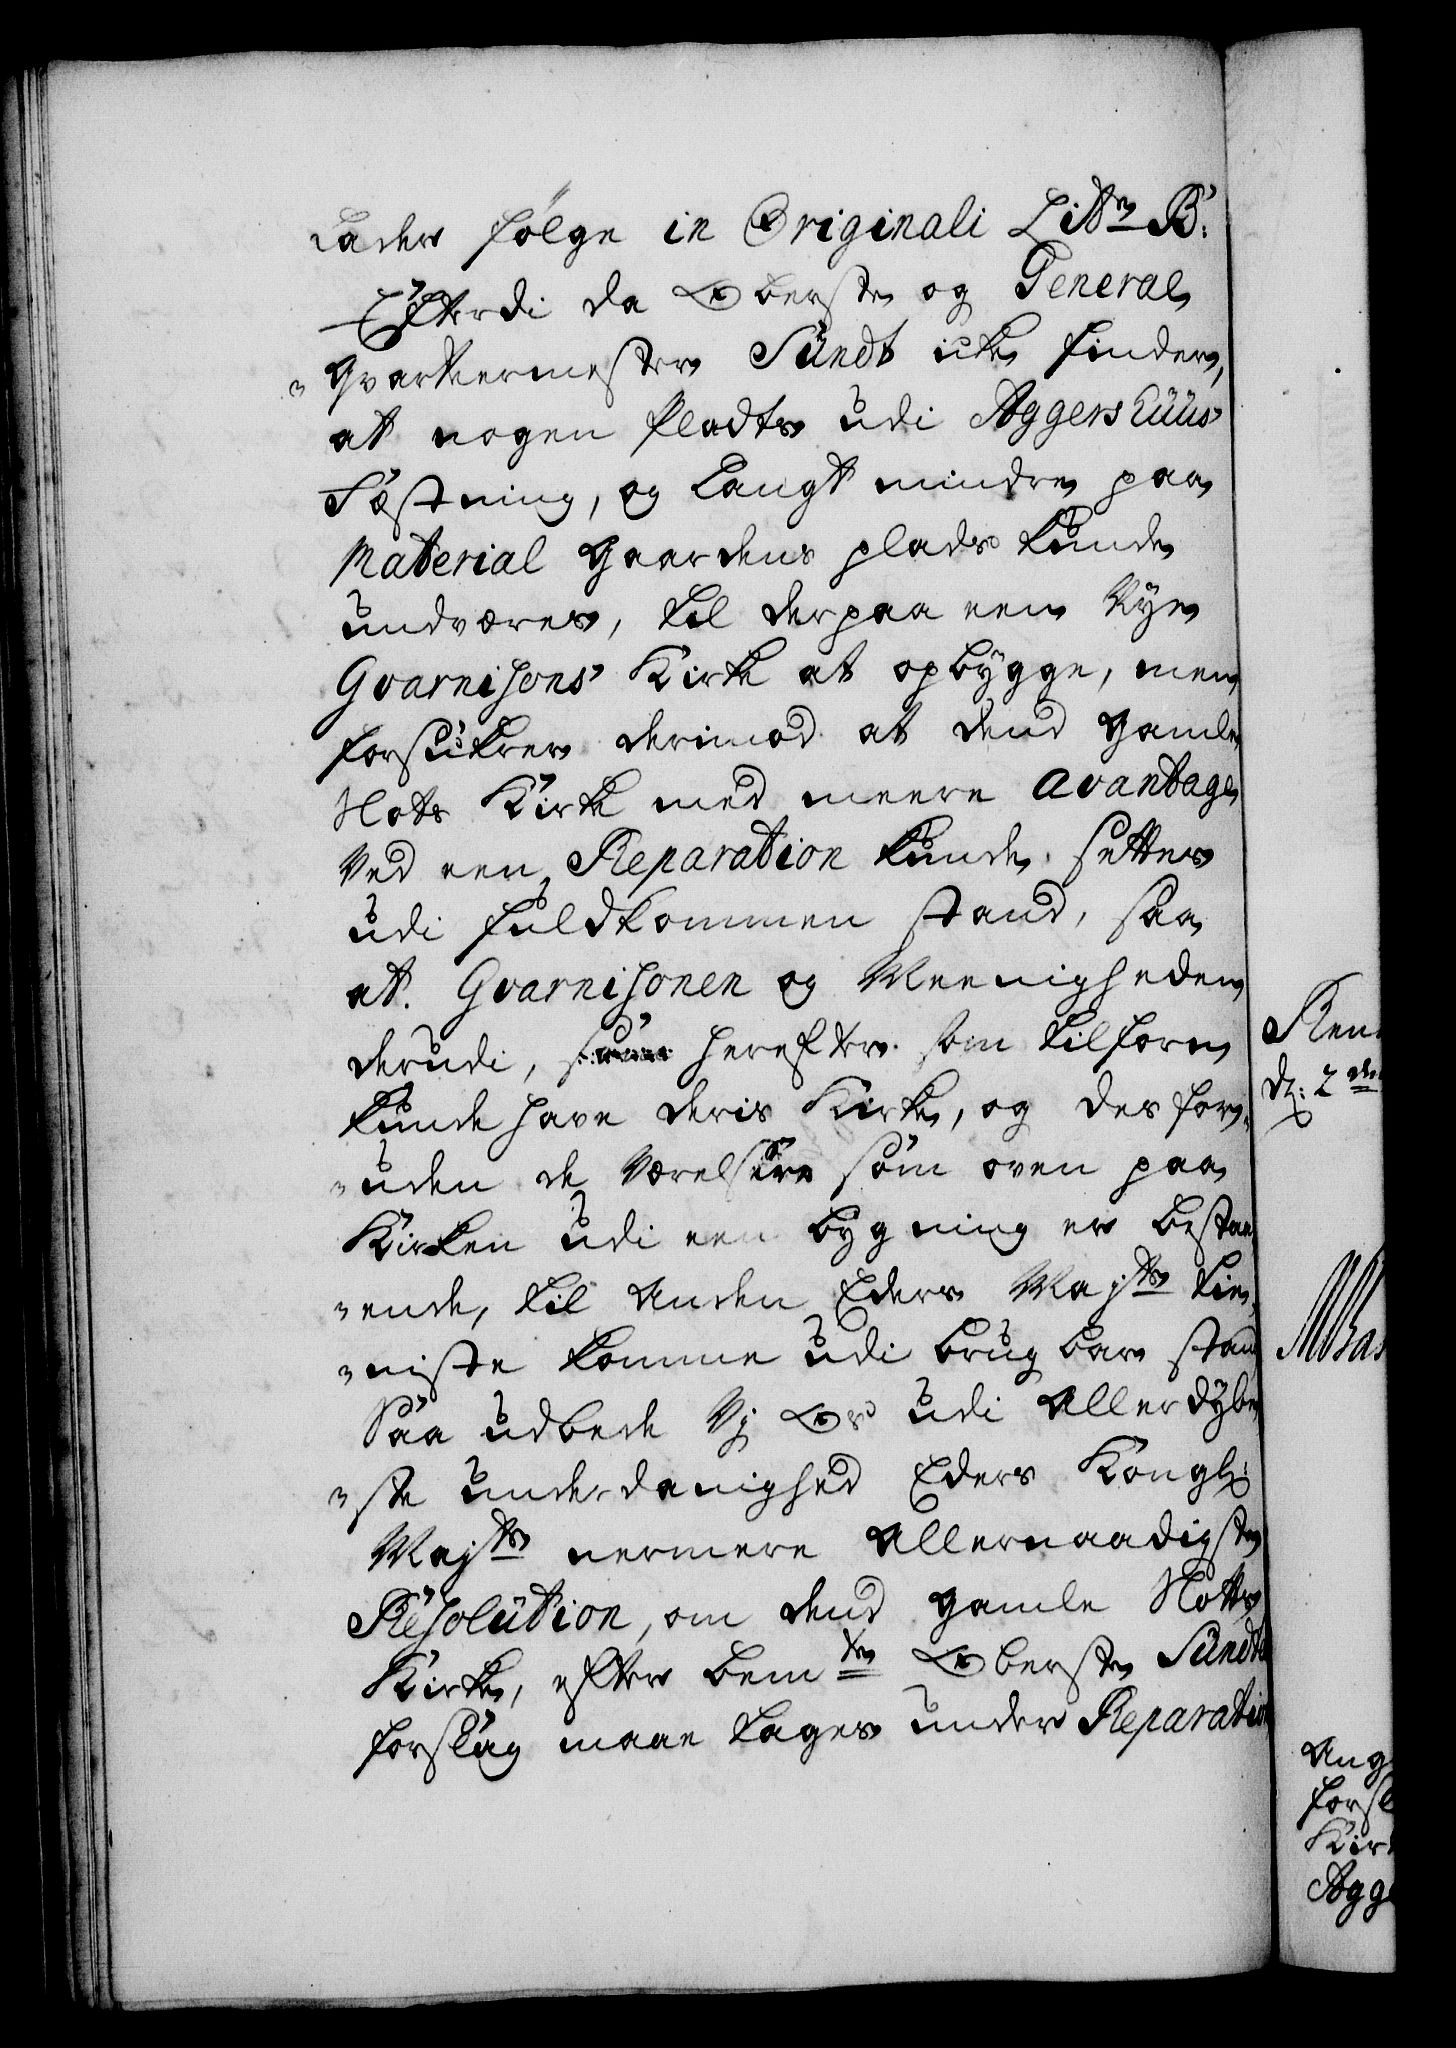 lader følge in Originali Litr B:
Efterdi da Oberste og General
Qvartiermester Sundt icke finder,
at nogen Pladts udi Aggershuus
Fæstning, og langt mindre paa
Material Gaardens plads kunde
undværes, til derpaa een Nye
Gvarnisons Kirke at opbygge, men
forsickrer derimod at dend gamle
Slots Kirke med meere avantage
ved een Reparation kunde settes
udi fuldkommen stand, saa
at Gvarnisonen og Meenigheden
derudi, herefter som tilforn
kunde have deris Kirke, og des for-
uden de Værelser som oven paa
Kirken udi een bygning er bestaa-
ende, til anden Eders Mayts tie-
niste komme udi brugbar stand
Saa udbede Vj os udi allerdybe-
ste underdanighed Eders Kongl:
Mayts nermere allernaadigste
Resolution, om dend gamle Slotts
Kirke, efter bemte Oberste Sundts
forslag maae tages under Reparation
Ren
d: 2den
Ang
forsl
Kir
Agg